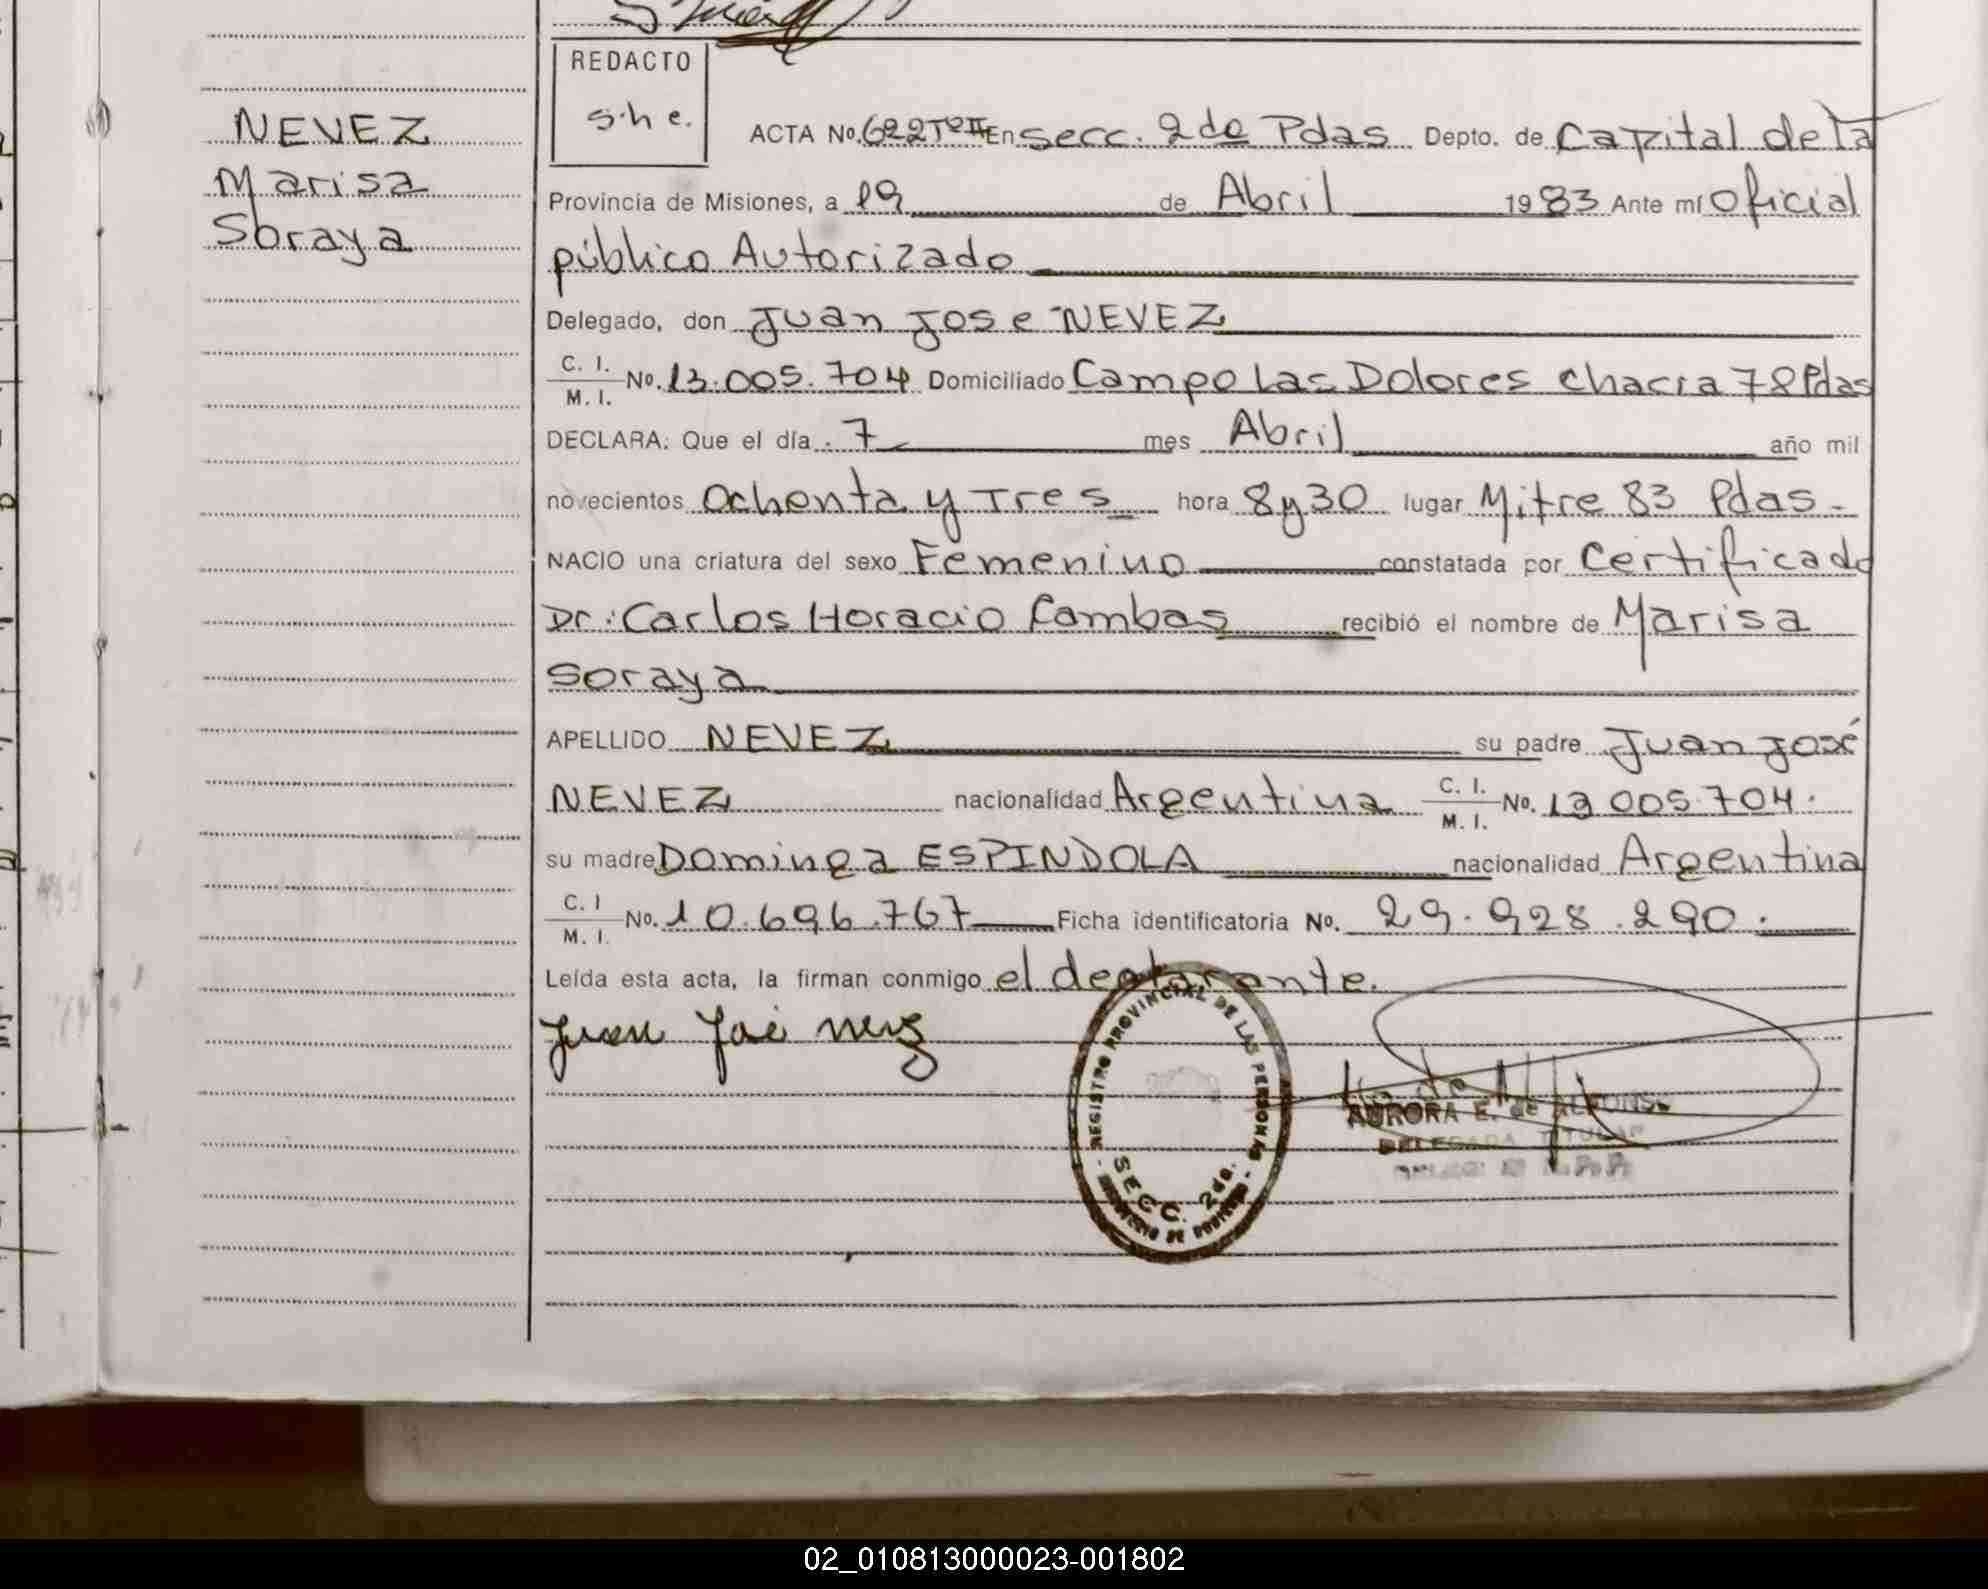 NEVEZ
Marisa
Soraya
REDACTO
s.h e.
ACTA No. 622 Tº II En secc. 2da Pdas Depto. de Capital de la
Provincia de Misiones, a 19 de Abril 1983 Ante mí Oficial
público Autorizado
Delegado, don Juan Jose NEVEZ
C. I.
M. I. No. 13.005.704 Domiciliado Campo Las Dolores chacra 78 Pdas
DECLARA: Que el día 7 mes Abril año mil
novecientos Ochenta y Tres hora 8y30 lugar Mitre 83 Pdas-
NACIO una criatura del sexo Femenino constatada por Certificado
Dr: Carlos Horacio Cambas recibió el nombre de Marisa
Soraya
APELLIDO NEVEZ su padre Juan José
NEVEZ nacionalidad Argentina C. I.
M. I. No. 13 005.704.
su madre Dominga ESPINDOLA nacionalidad Argentina
C. I
M. I. No. 10.696.767 Ficha identificatoria No. 29.928.290.
Leída esta acta, la firman conmigo el declarante.
Juan José
REGISTRO PROVINCIAL DE LAS PERSONAS
SECC. 2da.
AURORA E. de ALFONSO
DELEGADA TITULAR
02_010813000023-001802